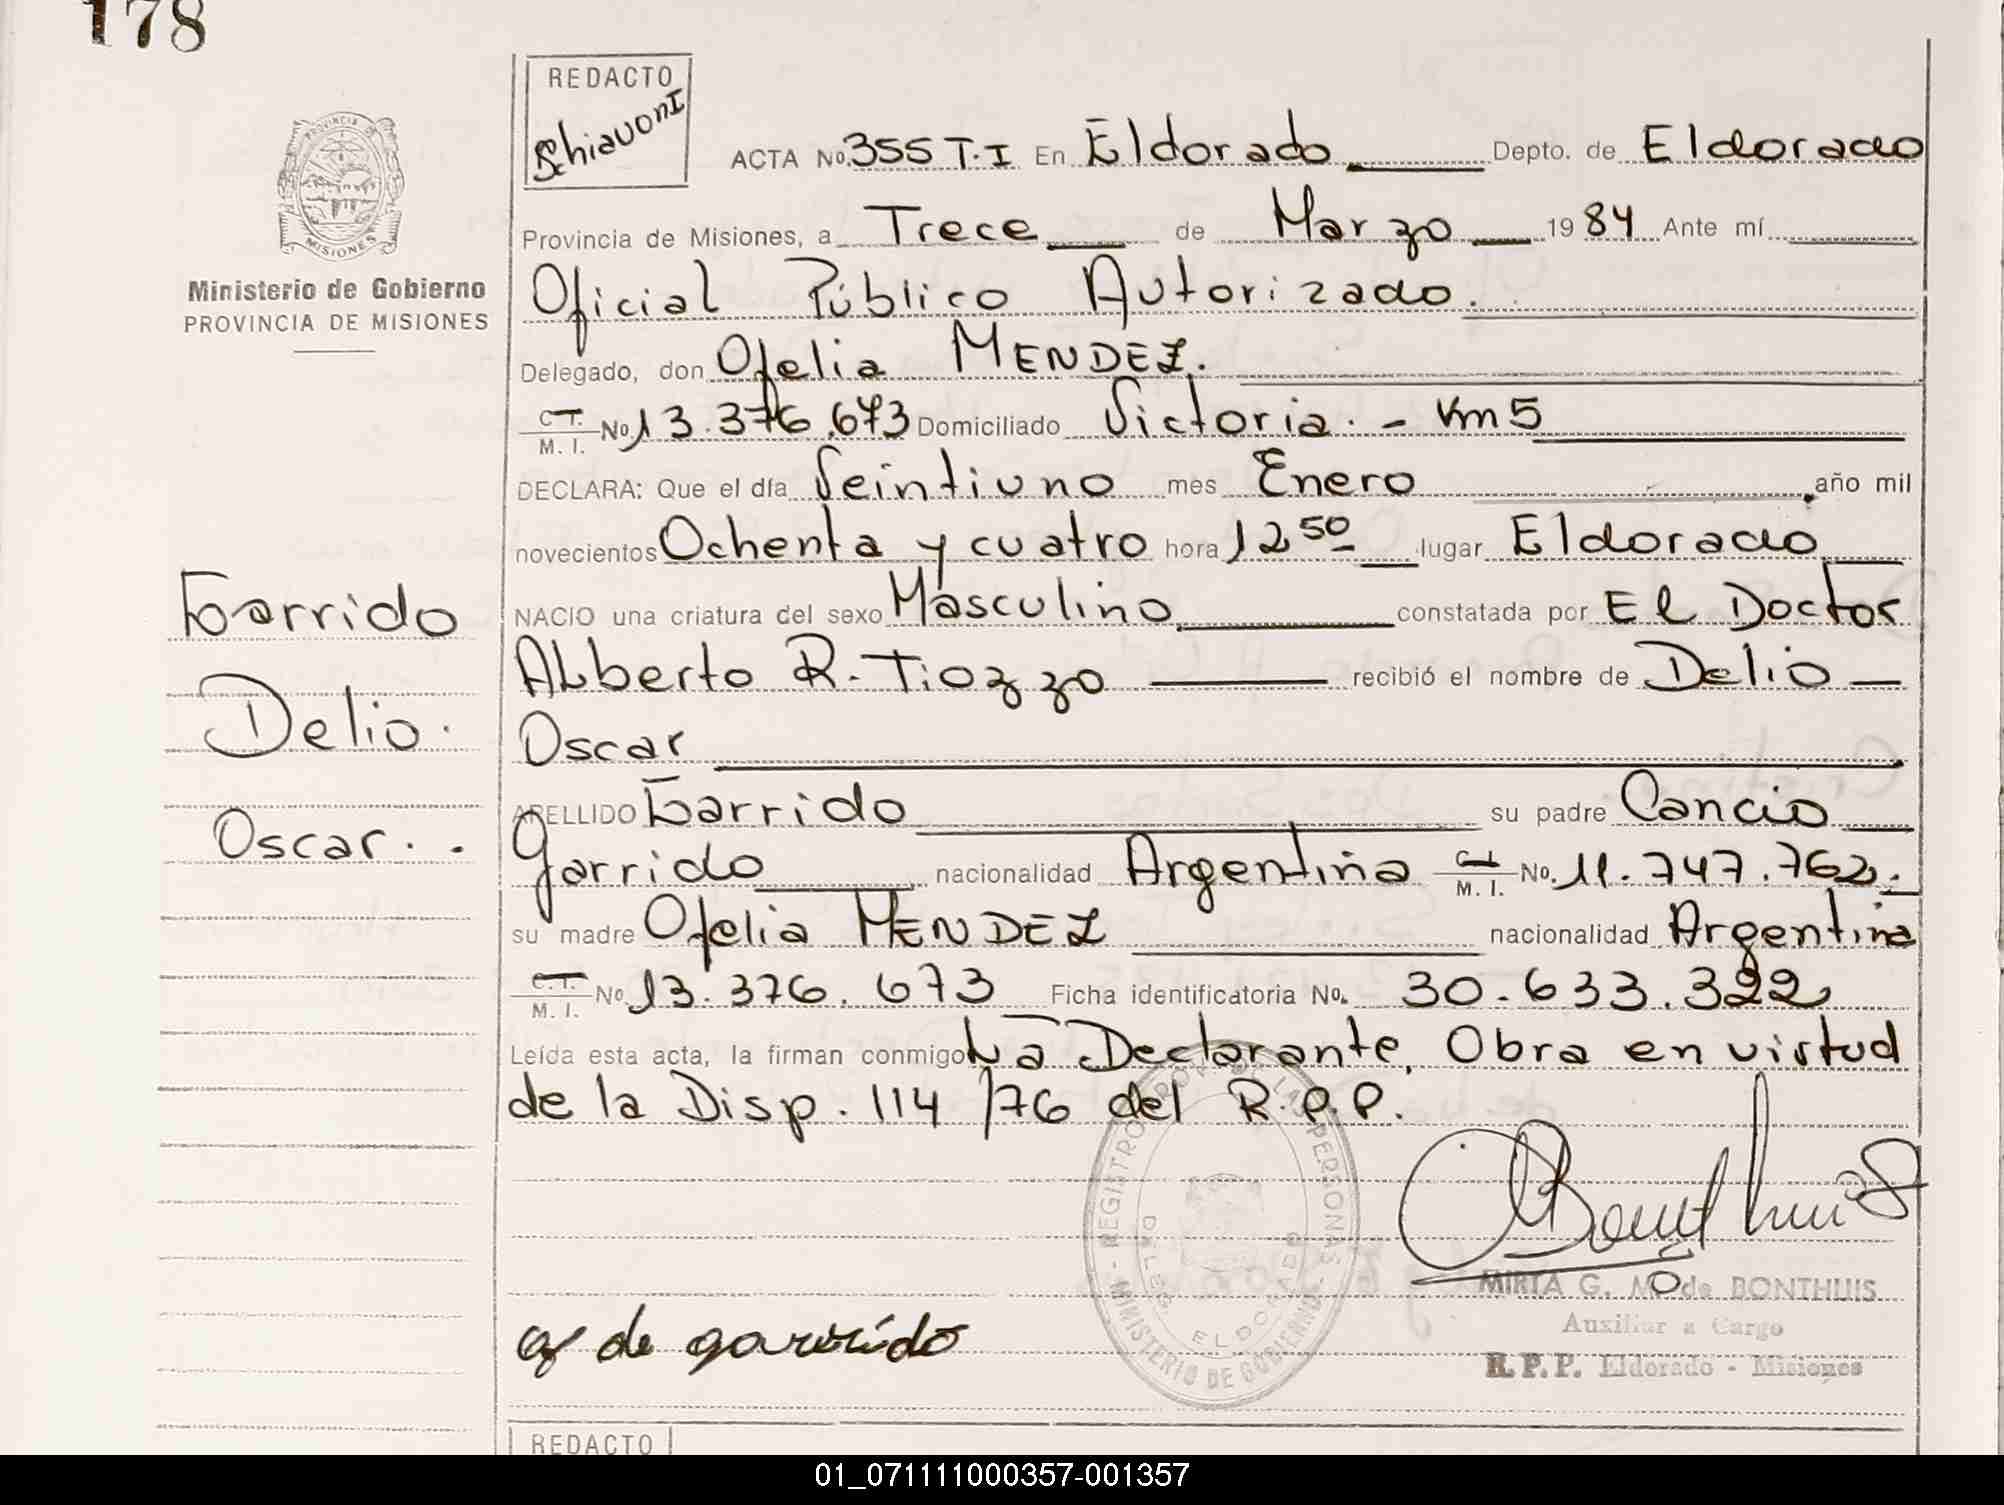 178
REDACTO
Schiavoni
PROVINCIA DE
MISIONES
Ministerio de Gobierno
PROVINCIA DE MISIONES
ACTA No. 355 T.I En Eldorado Depto. de Eldorado
Provincia de Misiones, a Trece de Marzo 1984 Ante mí
Oficial Público Autorizado.
Delegado, don Ofelia MENDEZ.
C.I. M. I. No. 13.376.673 Domiciliado Victoria. - Km5
DECLARA: Que el día Veintiuno mes Enero año mil
novecientos Ochenta y cuatro hora 12 50 lugar Eldorado
NACIO una criatura del sexo Masculino constatada por El Doctor
Alberto R. Tiozzo recibió el nombre de Delio
Oscar
APELLIDO Garrido su padre Cancio
Garrido nacionalidad Argentina C.I. M. I. No. 11.747.762.
su madre Ofelia MENDEZ nacionalidad Argentina
C.I. M. I. No. 13.376.673 Ficha identificatoria No. 30.633.322
Leída esta acta, la firman conmigo La Declarante, Obra en virtud
de la Disp. 114/76 del R.P.P.
Garrido
Delio.
Oscar..
REGISTRO PROV. DE LAS PERSONAS - MINISTERIO DE GOBIERNO -
DELEG. ELDORADO
MIRTA G. M. de BONTHUIS
Auxiliar a Cargo
R.P.P. Eldorado - Misiones
de garrido
REDACTO
01_071111000357-001357